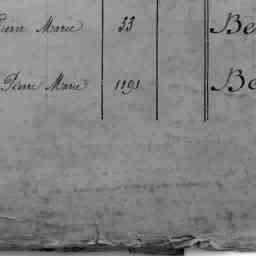 Pierre Marie 33 Be
Pierre Marie 1191 Be